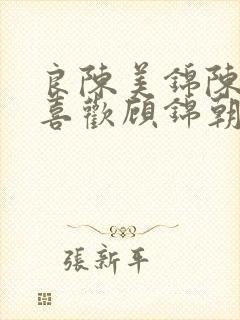 良陳美錦陳
喜歡顧錦朝
張新平